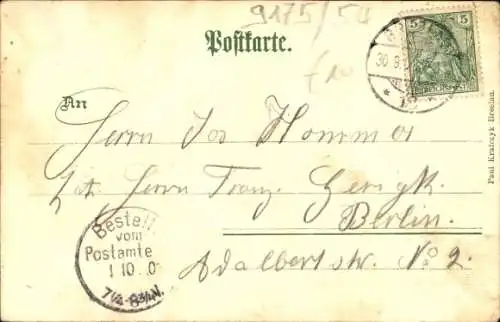 9175/54
Postkarte.
5 5
30.9.
f 10
An
Herrn Jos Hommes
Herrn Franz Gerigk.
Berlin.
Adalbertstr. No 2.
Bestellt
vom
Postamte
1 10. 0
7¼-8¾N.
Paul Krafczyk Breslau.